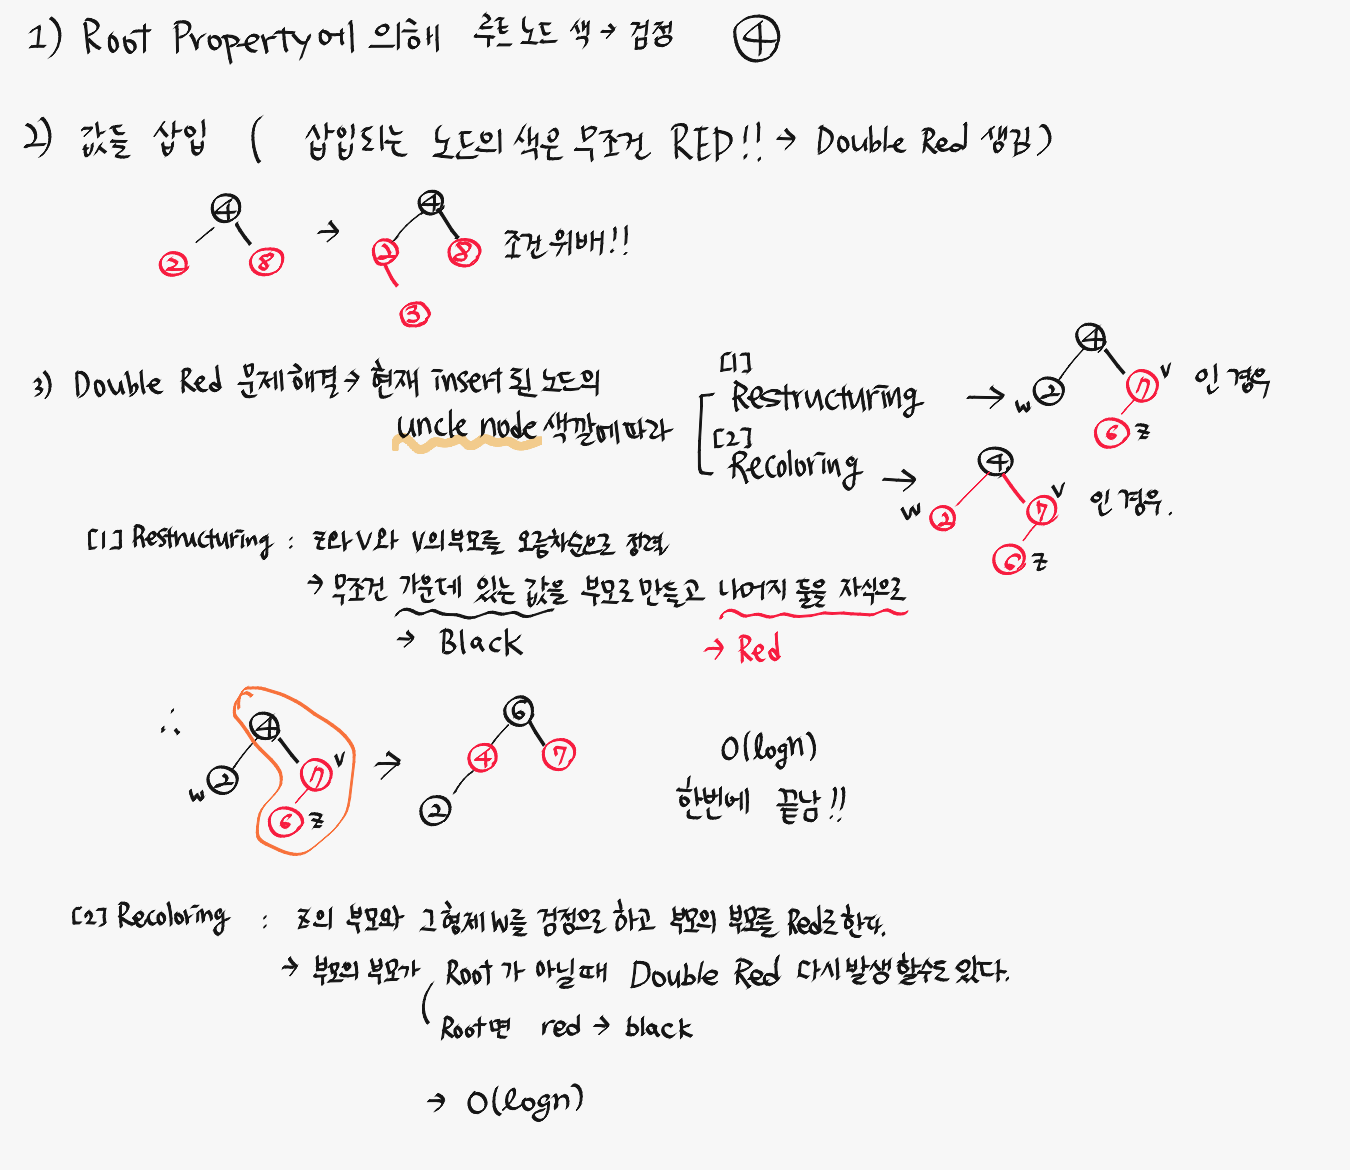 1) Root Property에 의해 루트 노드 색 → 검정 ④
2) 값들 삽입 ( 삽입되는 노드의 색은 무조건 RED!! → Double Red 생김 )
4 2 8 → 4 2 8 3 조건위배!!
3) Double Red 문제해결 → 현재 insert된 노드의
uncle node 색깔에 따라
[1] Restructuring → 4 w 2 7 v 6 z 인 경우
[2] Recoloring → 4 w 2 7 v 6 z 인 경우.
[1] Restructuring : z와 v와 v의 부모를 오름차순으로 정렬
→ 무조건 가운데 있는 값을 부모로 만들고 나머지 둘을 자식으로
→ Black → Red
∴ 4 w 2 7 v 6 z → 6 4 7 2
O(logn)
한번에 끝남!!
[2] Recoloring : z의 부모와 그 형제 w를 검정으로 하고 부모의 부모를 Red로 한다.
→ 부모의 부모가 Root가 아닐때 Double Red 다시 발생할수도 있다.
Root면 red → black
→ O(logn)